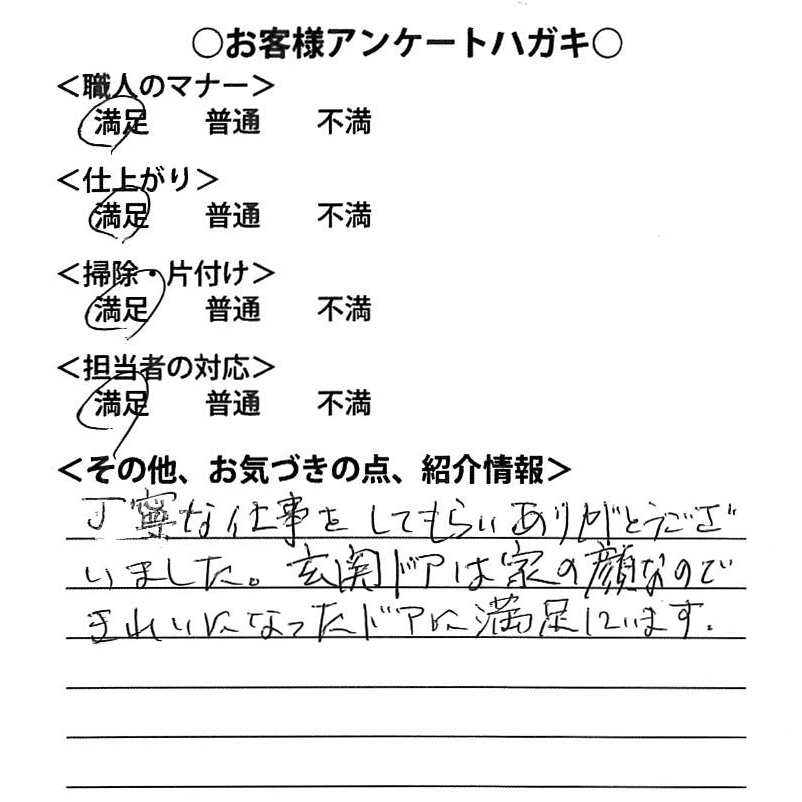 ○お客様アンケートハガキ○
＜職人のマナー＞
満足 普通 不満
＜仕上がり＞
満足 普通 不満
＜掃除・片付け＞
満足 普通 不満
＜担当者の対応＞
満足 普通 不満
＜その他、お気づきの点、紹介情報＞
丁寧な仕事をしてもらいありがとうござ
いました。玄関ドアは家の顔なので
きれいになったドアに満足しています。